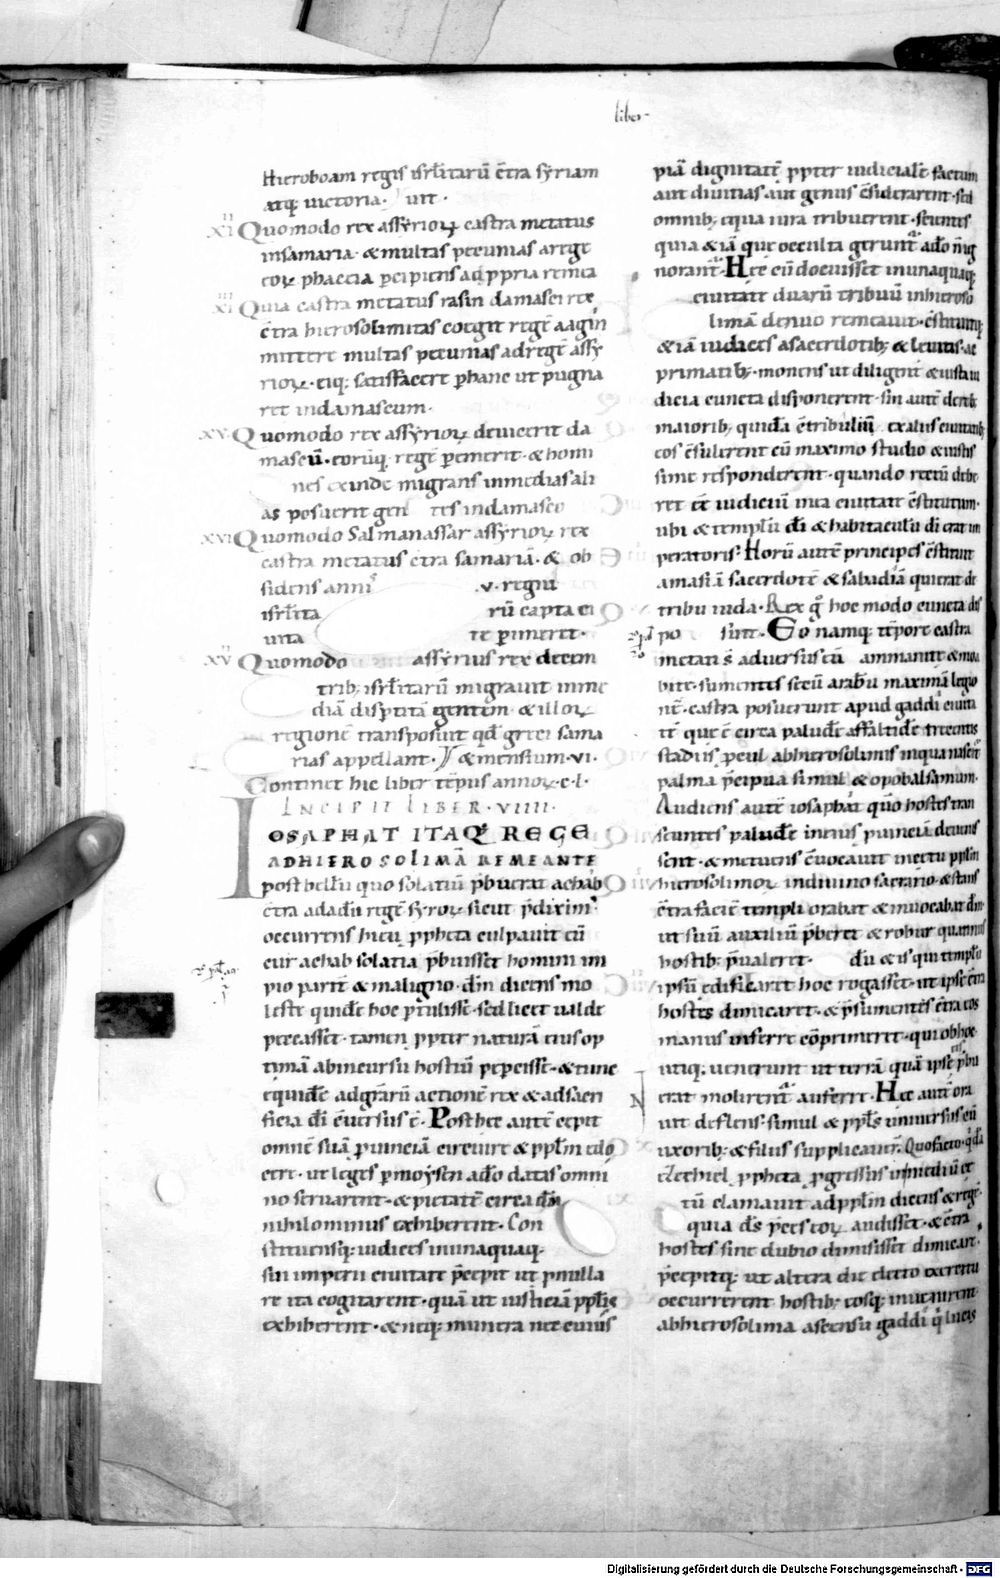 liber
Hieroboam regis isrl̄itarū c̄tra syriam
atq; victoria.
XIII Quomodo rex assyrioꝝ castra metatus
in samaria. & multas pecunias a rege
eoꝝ phaceia p̄cipiens ad ppria remea
XIIII Quia castra metatus rasin damasci rex
c̄tra hierosolimitas coegit regē aagin
mittere multas pecunias ad regē assy
rioꝝ. eiq; satisfacere p̄hane ut pugna
ret in damascum.
XV Quomodo rex assyrioꝝ devicerit da
mascū. eorūq; regē p̄emerit. & homi
nes exinde migrans in medias ali
as posuerit gen tes in damasco
XVI Quomodo Salmanassar assyrioꝝ rex
castra metatus c̄tra samariā. & ob
sidens annis .v. regni
isrl̄ita rū capta ci
uita te p̄imeret.
XVII Quomodo assyrius rex decem
trib; isrl̄itarū migravit in me
diā disputā gentem. & illoꝝ
regionē transposuit qd̄ greci sama
rias appellant. & mensium .vi.
Continet hic liber tēpus annoꝝ .c.l.
INCIPIT LIBER .VIIII.
IOSAPHAT ITAQ; REGE
AD HIEROSOLIMĀ REMEANTE
post bellū quo solatiū p̄buerat achab
c̄tra adadū regē syroꝝ sicut p̄dixim᾽
occurrens hieu pp̄heta culpavit eū
cur achab solatia p̄buisset homini im
pio parit̄ & maligno. dn̄m dicens mo
leste quidē hoc p̄tulisse. sed licet valde
peccasset. tamen ppter naturā eius op
timā ab incursu hostiū p̄peisset. & tunc
equidē ad grārū actionē rex & ad sacri
ficia dī c̄versus ē. Post hec autē cepit
omnē suā pvinciā circuire & pp̄lm edo
cere. ut leges p̄ moysen a dō datas omni
no servarent. & pietatē circa dn̄m
nihilominus exhiberent. Con
stituensq; iudices in unaquaq;
sui imperii civitate p̄cepit ut p̄ nulla
re ita cogitarent. quā ut iusticiā pp̄lis
exhiberent. & neq; munera nec cuius
piā dignitatē ppter iudicialē factum
aut divitias aut genus c̄siderarent. sed
omnib; equa iura tribuerent. scientes
quia & iā que occulta gerunt̄ a dō n̄ ig
norant̄. Hec cū docuisset in unaquaq;
civitate duarū tribuū in hieroso
limā denuo remeavit. c̄stituitq;
& iā iudices a sacerdotib; & levitis. ac
primatib;. monens ut diligent̄ & iusta iu
dicia cuncta disponerent. sin autē de reb;
maiorib; quidā c̄tribuliū ex aliis civitatib;
eos c̄sulerent cū maximo studio & iustis
sime responderent. quando rectū debe
ret eē iudiciū in ea civitate c̄stitutum.
ubi & templū dī & habitaculū dī erat im
peratoris. Horū autē principes c̄stituit
amasiā sacerdotē & sabadiā qui erat de
tribu iuda. Rex g̊ hoc modo cuncta dis
po suit. Eo namq; tēpore castra
metati s̄ adversus eū ammanite & moa
bite. sumentes secū arabū maximā legio
nē. castra posuerunt apud gaddi civita
tē que ē circa paludē asfaltidē trecentis
stadiis p̄cul ab hierosolimis in qua nascit̄
palma p̄cipua simul & opobalsamum.
Audiens autē iosaphat quō hostes tran
seuntes paludē in eius pvinciā devenis
sent. & metuens c̄vocavit in ectu pp̄lm
hierosolimoꝝ in divino sacrario & stans
c̄tra faciē templi orabat & invocabat dm̄.
ut suū auxiliū p̄beret & robur quatinus
hostib; p̄valeret. dū & is qui templū
ipsū edificaret hoc rogasset. ut ipse c̄tra
hostes dimicaret. & p̄sumentes c̄tra eos
manus inferre cōprimeret. qui ob hoc
utiq; venerunt ut terrā quā ipse eis p̄bu
erat molirent̄ auferre. Hec autē ora
vit deflens. simul & pp̄ls universus cū
uxorib; & filiis supplicavit. Quo facto. qdā
Zethiel pp̄heta p̄gressus in mediū ce
tū clamavit ad pp̄lm dicens & regē.
quia ds̄ p̄ces eoꝝ audisset. & c̄tra
hostes sine dubio dimisisset dimicare.
p̄cepitq; ut altera die electo exercitu
occurrerent hostib;. eosq; invenirent
ab hierosolima ascensu gaddi q̄ in locis